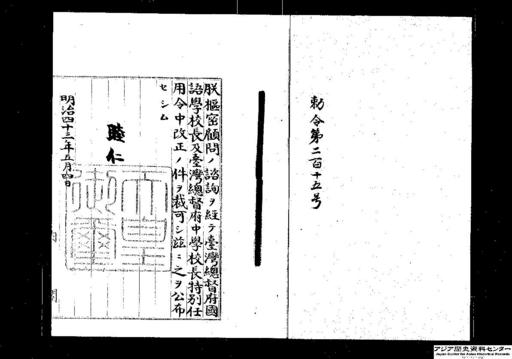 勅令第二百十五号
朕樞密顧問ノ諮詢ヲ經テ臺灣總督府國
語學校長及臺灣總督府中學校長特別任
用令中改正ノ件ヲ裁可シ茲ニ之ヲ公布
セシム
睦仁
天皇
御璽
明治四十三年五月四日
内閣
アジア歴史資料センター
Japan Center for Asian Historical Records